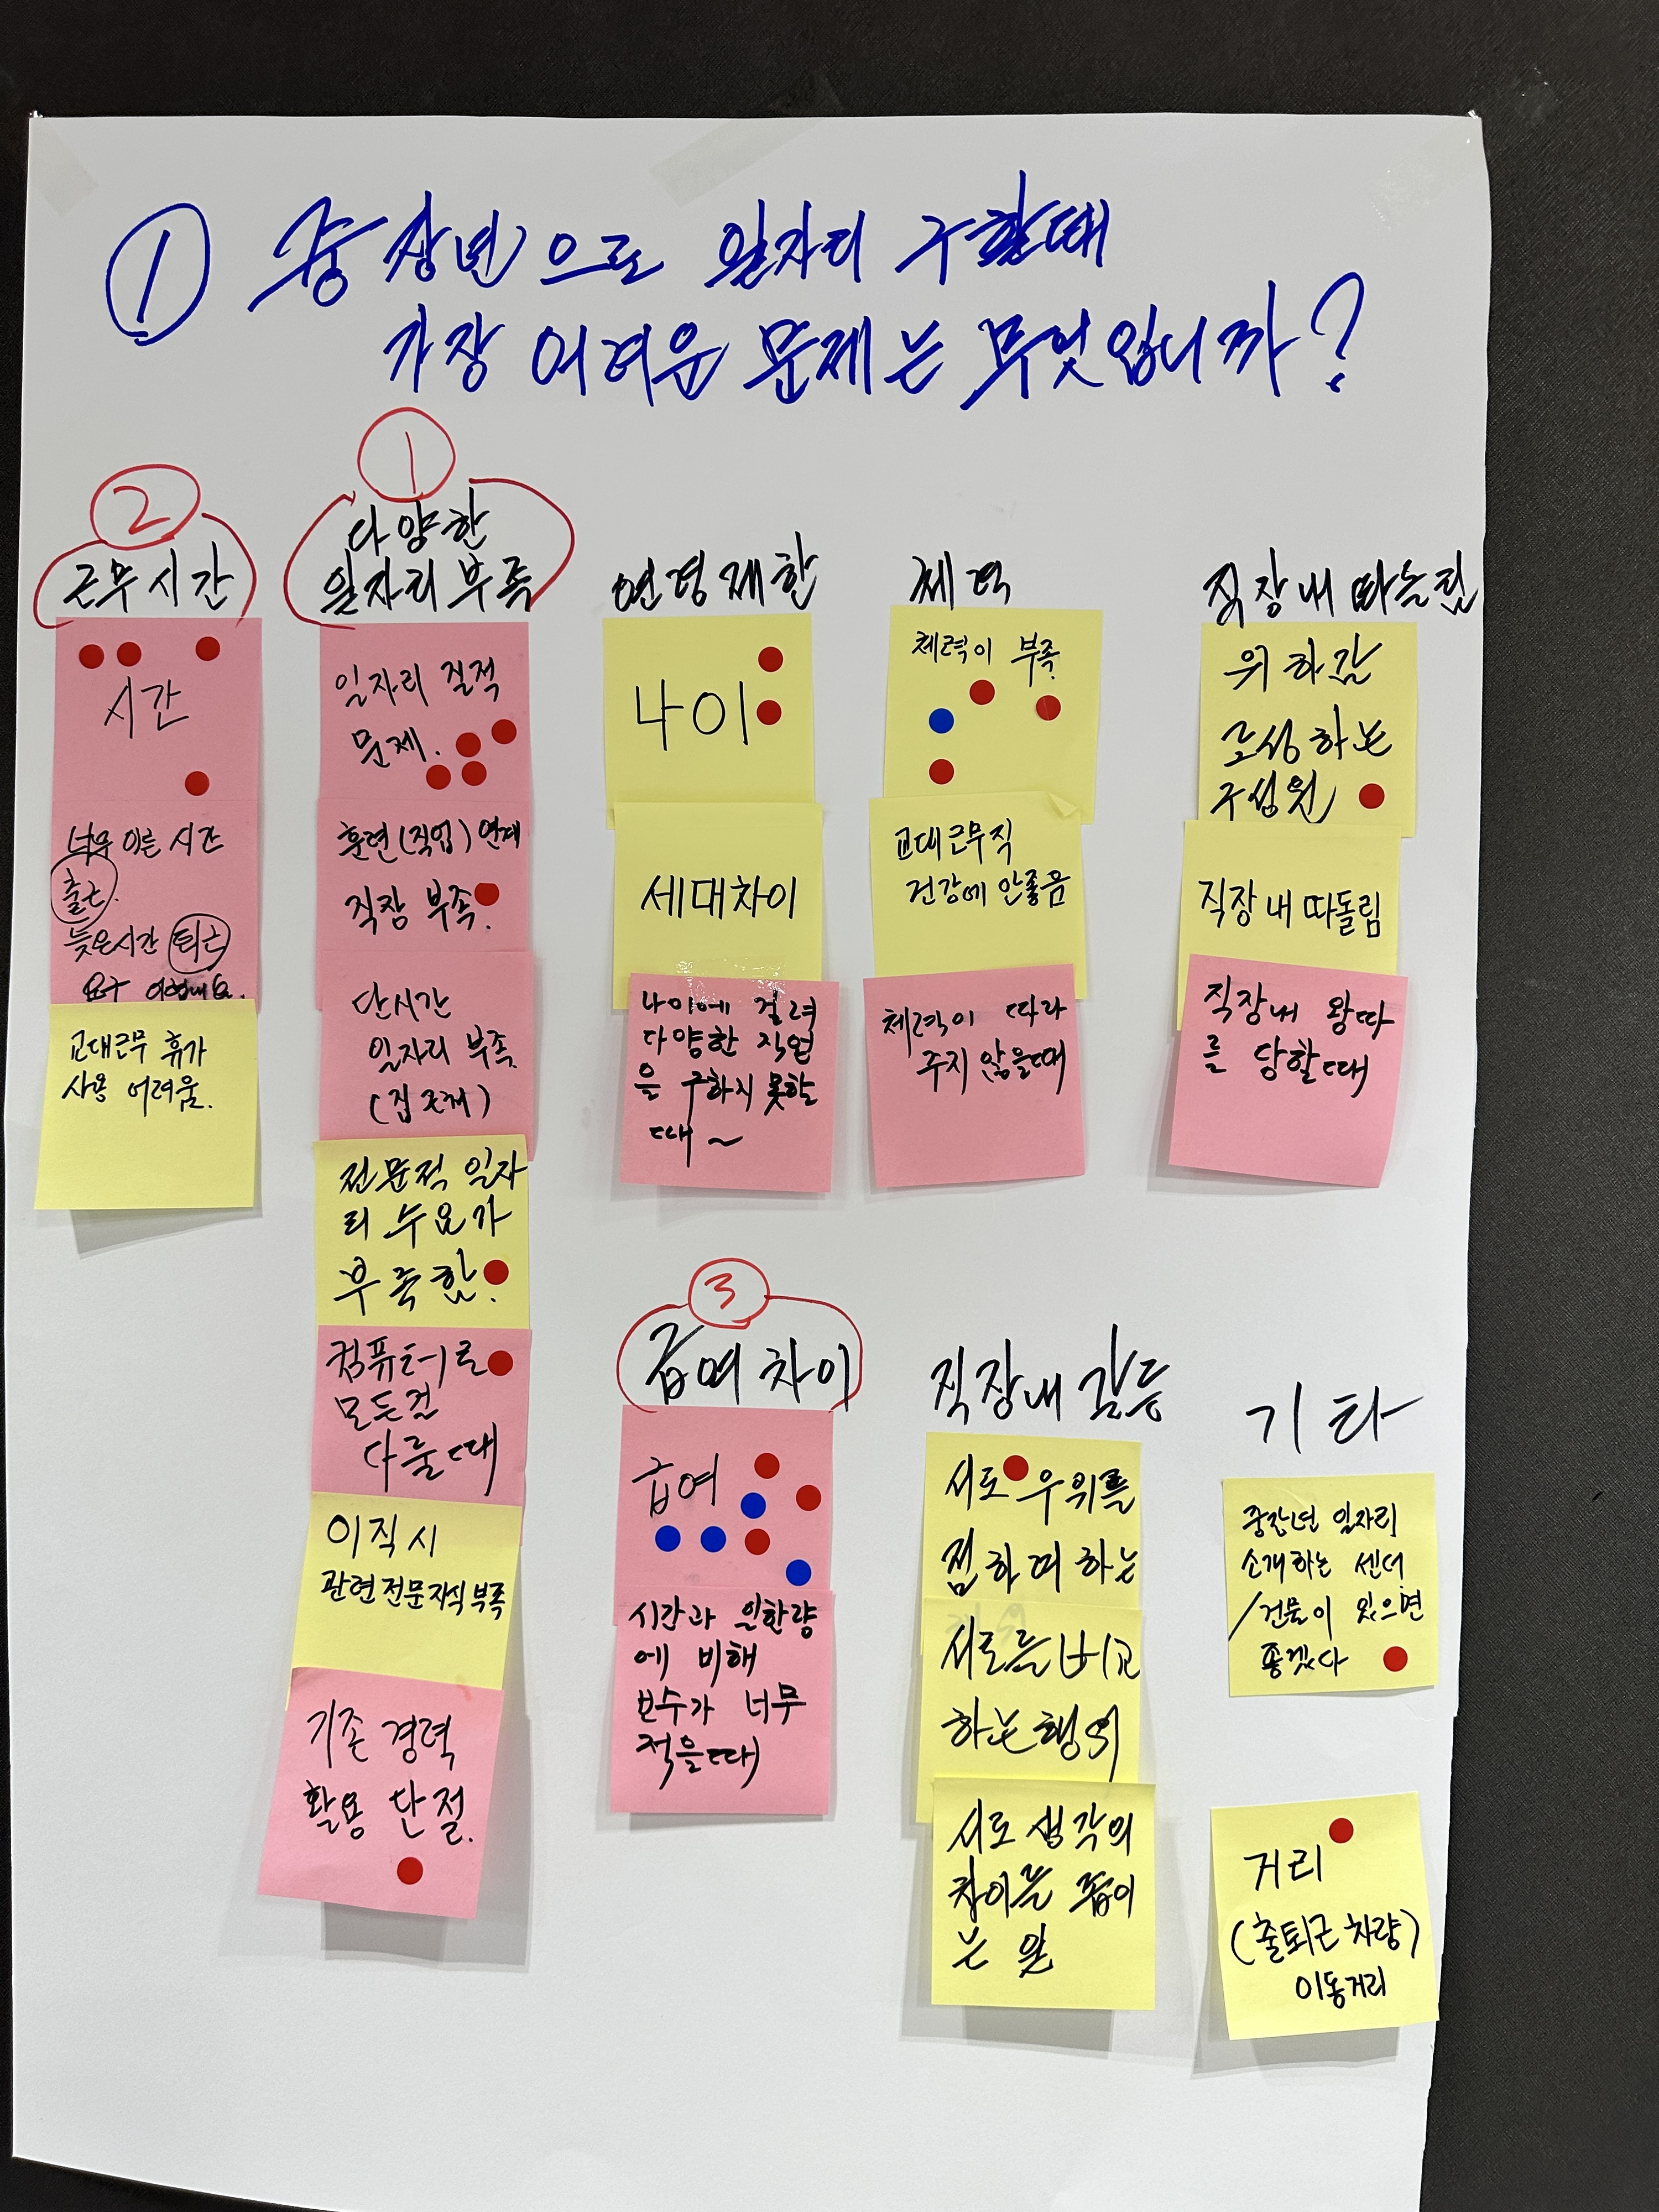 ① 중장년으로 일자리 구할때
가장 어려운 문제는 무엇입니까?
②
근무시간
시간
너무 이른 시간
출근.
늦은시간 퇴근
요구
교대근무 휴가
사용 어려움.
①
다양한
일자리부족
일자리 질적
문제.
훈련(직업) 연계
직장 부족.
단시간
일자리 부족
(집근처)
전문적 일자
리 수요가
부족함.
컴퓨터로
모든걸
다룰때
이직시
관련전문지식부족
기존 경력
활용 단절.
연령제한
나이
세대차이
나이에 걸려
다양한 직업
을 구하지 못할
때~
체력
체력이 부족.
교대근무직
건강에 안좋음
체력이 따라
주지 않을때
직장내 따돌림
위화감
조성하는
구성원
직장내 따돌림
직장내 왕따
를 당할때
③
급여차이
급여
시간과 일한량
에 비해
보수가 너무
적을때
직장내 갈등
서로 우위를
점하여하는
서로를 비교
하는행위
서로생각의
차이를 좁이
는 일
기타
중장년 일자리
소개하는 센터
/건물이 있으면
좋겠다
거리
(출퇴근차량)
이동거리